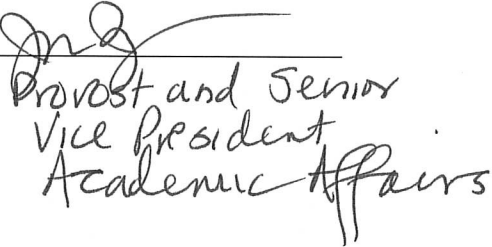 Provost and Senior
Vice President
Academic Affairs